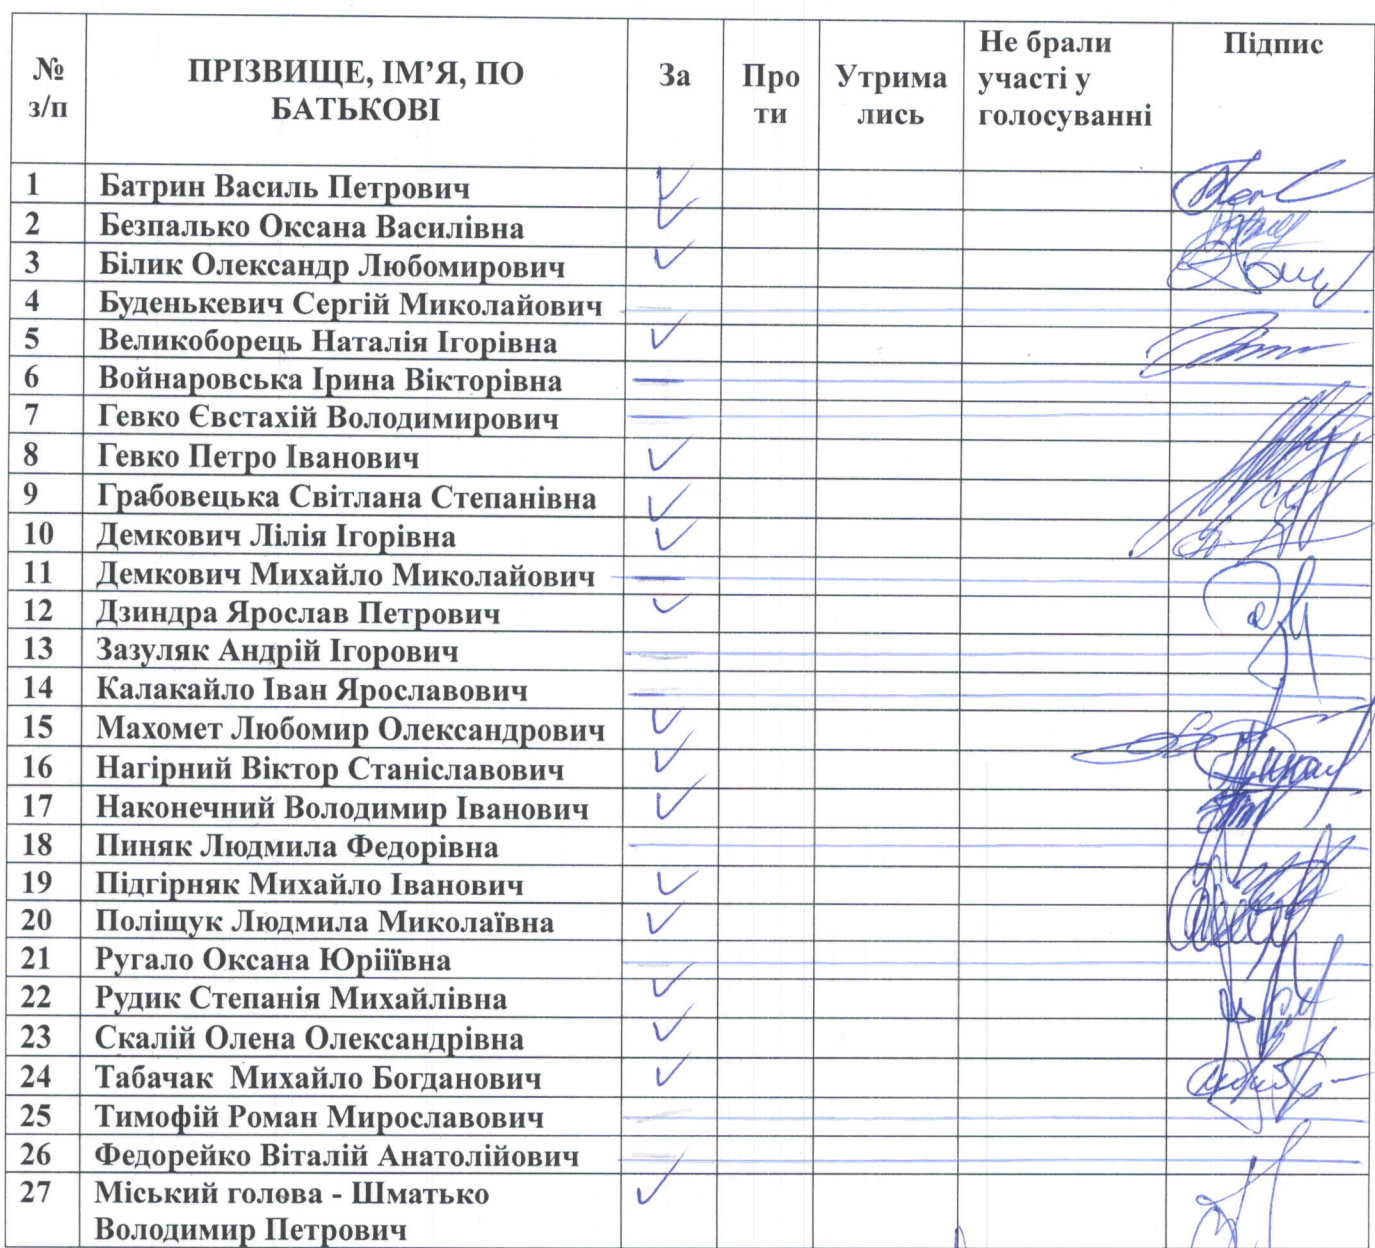 № з/п ПРІЗВИЩЕ, ІМ’Я, ПО БАТЬКОВІ За Проти Утримались Не брали участі у голосуванні Підпис
1 Батрин Василь Петрович ✓
2 Безпалько Оксана Василівна ✓
3 Білик Олександр Любомирович ✓
4 Буденькевич Сергій Миколайович
5 Великоборець Наталія Ігорівна ✓
6 Войнаровська Ірина Вікторівна
7 Гевко Євстахій Володимирович
8 Гевко Петро Іванович ✓
9 Грабовецька Світлана Степанівна ✓
10 Демкович Лілія Ігорівна ✓
11 Демкович Михайло Миколайович
12 Дзиндра Ярослав Петрович ✓
13 Зазуляк Андрій Ігорович
14 Калакайло Іван Ярославович
15 Махомет Любомир Олександрович ✓
16 Нагірний Віктор Станіславович ✓
17 Наконечний Володимир Іванович ✓
18 Пиняк Людмила Федорівна
19 Підгірняк Михайло Іванович ✓
20 Поліщук Людмила Миколаївна ✓
21 Ругало Оксана Юріїївна
22 Рудик Степанія Михайлівна ✓
23 Скалій Олена Олександрівна ✓
24 Табачак Михайло Богданович ✓
25 Тимофій Роман Мирославович
26 Федорейко Віталій Анатолійович
27 Міський голова - Шматько ✓
Володимир Петрович